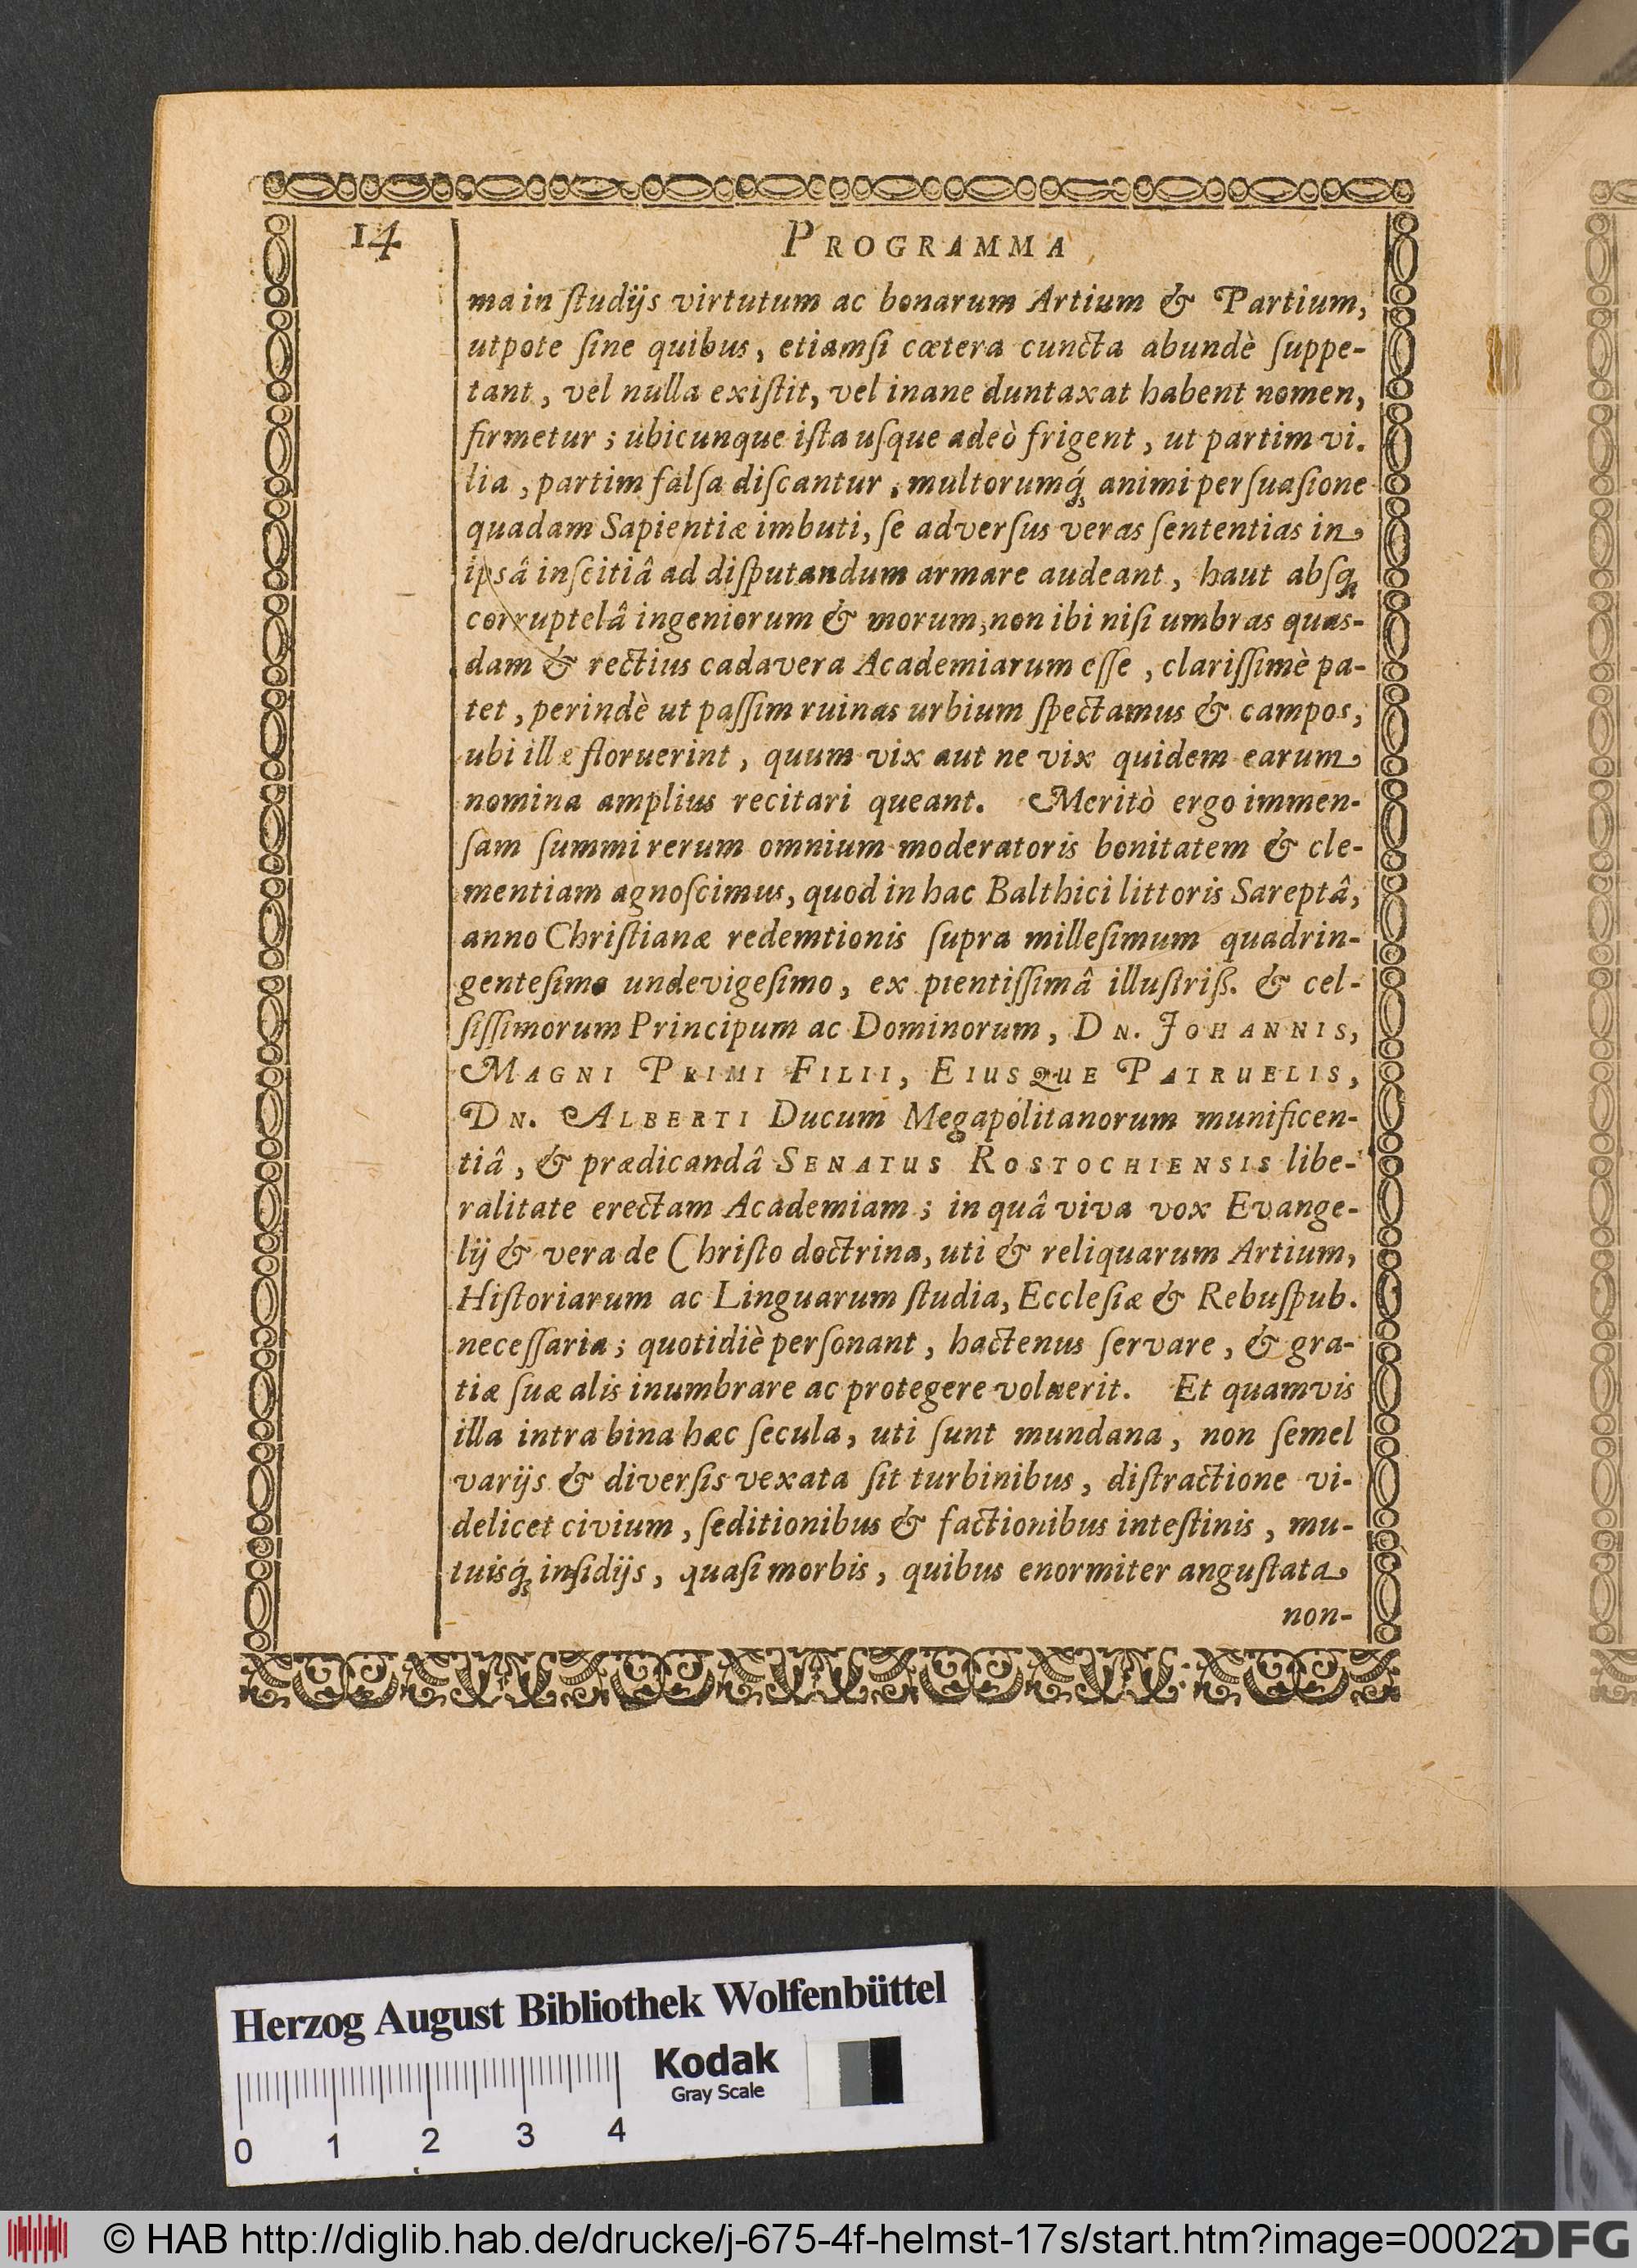 14
PROGRAMMA
ma in ſtudijs virtutum ac bonarum Artium & Partium,
utpote ſine quibus, etiamſi cœtera cuncta abundè ſuppe-
tant, vel nulla exiſtit, vel inane duntaxat habent nomen,
firmetur; ubicunque iſta uſque adeò frigent, ut partim vi.
lia, partim falſa diſcantur, multorumq́; animi perſuaſione
quadam Sapientiæ imbuti, ſe adverſus veras ſententias in
ipsâ inſcitiâ ad diſputandum armare audeant, haut abſq;
corruptelâ ingeniorum & morum, non ibi niſi umbras quas-
dam & rectius cadavera Academiarum eſſe, clariſſimè pa-
tet, perindè ut paſſim ruinas urbium ſpectamus & campos,
ubi illæ floruerint, quum vix aut ne vix quidem earum
nomina amplius recitari queant. Meritò ergo immen-
ſam ſummi rerum omnium moderatoris bonitatem & cle-
mentiam agnoſcimus, quod in hac Balthici littoris Sareptâ,
anno Chriſtianæ redemtionis ſupra milleſimum quadrin-
genteſimo undevigeſimo, ex pientiſſimâ illuſtriß. & cel-
ſiſſimorum Principum ac Dominorum, DN. JOHANNIS,
MAGNI PRIMI FILII, EIUSQUE PATRUELIS,
DN. ALBERTI Ducum Megapolitanorum munificen-
tiâ, & prædicandâ SENATUS ROSTOCHIENSIS libe-
ralitate erectam Academiam; in quâ viva vox Evange-
lij & vera de Chriſto doctrina, uti & reliquarum Artium,
Hiſtoriarum ac Linguarum ſtudia, Eccleſiæ & Rebuſpub.
neceſſaria; quotidiè perſonant, hactenus ſervare, & gra-
tiæ ſuæ alis inumbrare ac protegere voluerit. Et quamvis
illa intra bina hæc ſecula, uti ſunt mundana, non ſemel
varijs & diverſis vexata ſit turbinibus, diſtractione vi-
delicet civium, ſeditionibus & factionibus inteſtinis, mu-
tuisq́; inſidijs, quaſi morbis, quibus enormiter anguſtata
non-
Herzog August Bibliothek Wolfenbüttel
Kodak
Gray Scale
0 1 2 3 4
© HAB http://diglib.hab.de/drucke/j-675-4f-helmst-17s/start.htm?image=00022
DFG